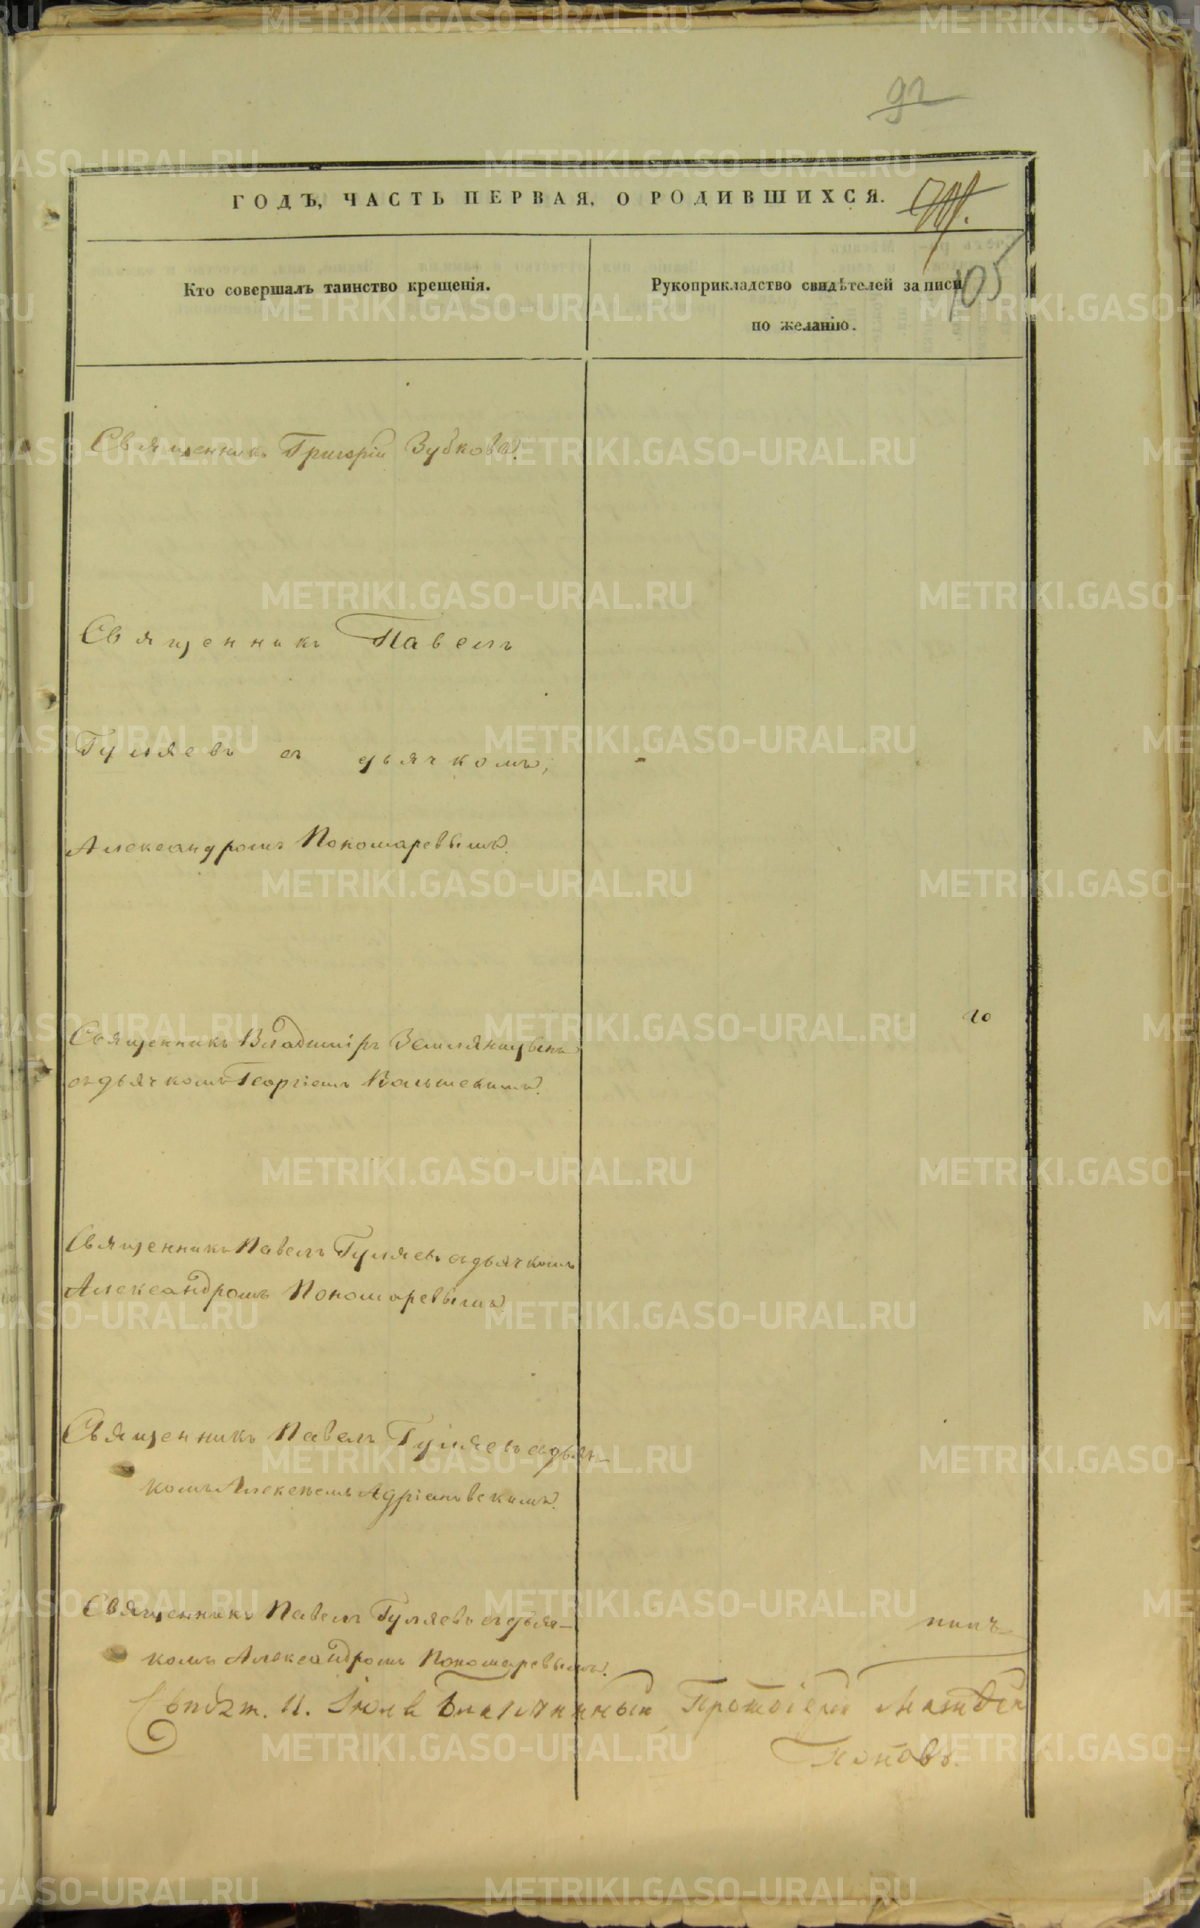 92
ГОДЪ, ЧАСТЬ ПЕРВАЯ, О РОДИВШИХСЯ.
105
Кто совершалъ таинство крещенія.
Рукоприкладство свидѣтелей записи
по желанію.
Священникъ Григорій Зубковъ.
Священникъ Павелъ
Гуляевъ съ дьячкомъ,
Александромъ Пономаревымъ.
Священникъ Владиміръ Земляницынъ
съ дьячкомъ Георгіемъ
Священникъ Павелъ Гуляевъ съ дьячкомъ
Александромъ Пономаревымъ
Священникъ Павелъ Гуляевъ съ дьяч-
комъ Алексѣемъ Адріановскимъ.
Священникъ Павелъ Гуляевъ съ дьяч-
комъ Александромъ Пономаревымъ.
Благочинный Протоіерей Матѳей
Поповъ.
METRIKI.GASO-URAL.RU